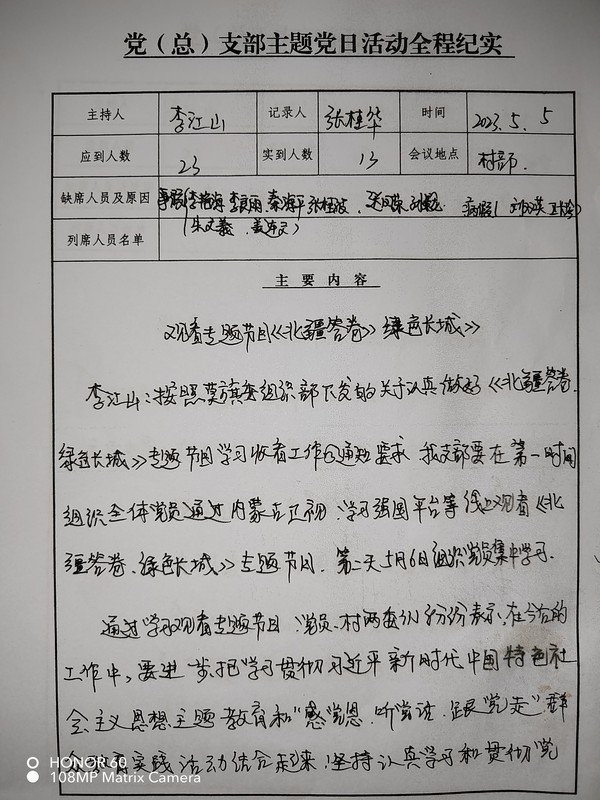 党（总）支部主题党日活动全程纪实
主持人 李江山 记录人 张桂华 时间 2023.5.5
应到人数 23 实到人数 13 会议地点 村部
缺席人员及原因 事假( 李良雨 秦海平 张桂波 病假(
列席人员名单
主要内容
观看专题节目《北疆答卷》绿色长城》
李江山:按照莫旗委组织部下发的关于认真做好《北疆答卷.
绿色长城》专题节目学习收看工作的通知要求 我支部要在第一时间
组织全体党员通过内蒙古卫视.学习强国平台等线上观看《北
疆答卷.绿色长城》专题节目.第二天5月6日组织党员集中学习.
通过学习观看专题节目.党员.村两委们纷纷表示,在今后的
工作中,要进一步把学习贯彻习近平新时代中国特色社
会主义思想主题教育和"感党恩.听党话.跟党走"群
众教育实践活动结合起来,坚持认真学习和贯彻党
HONOR 60
108MP Matrix Camera